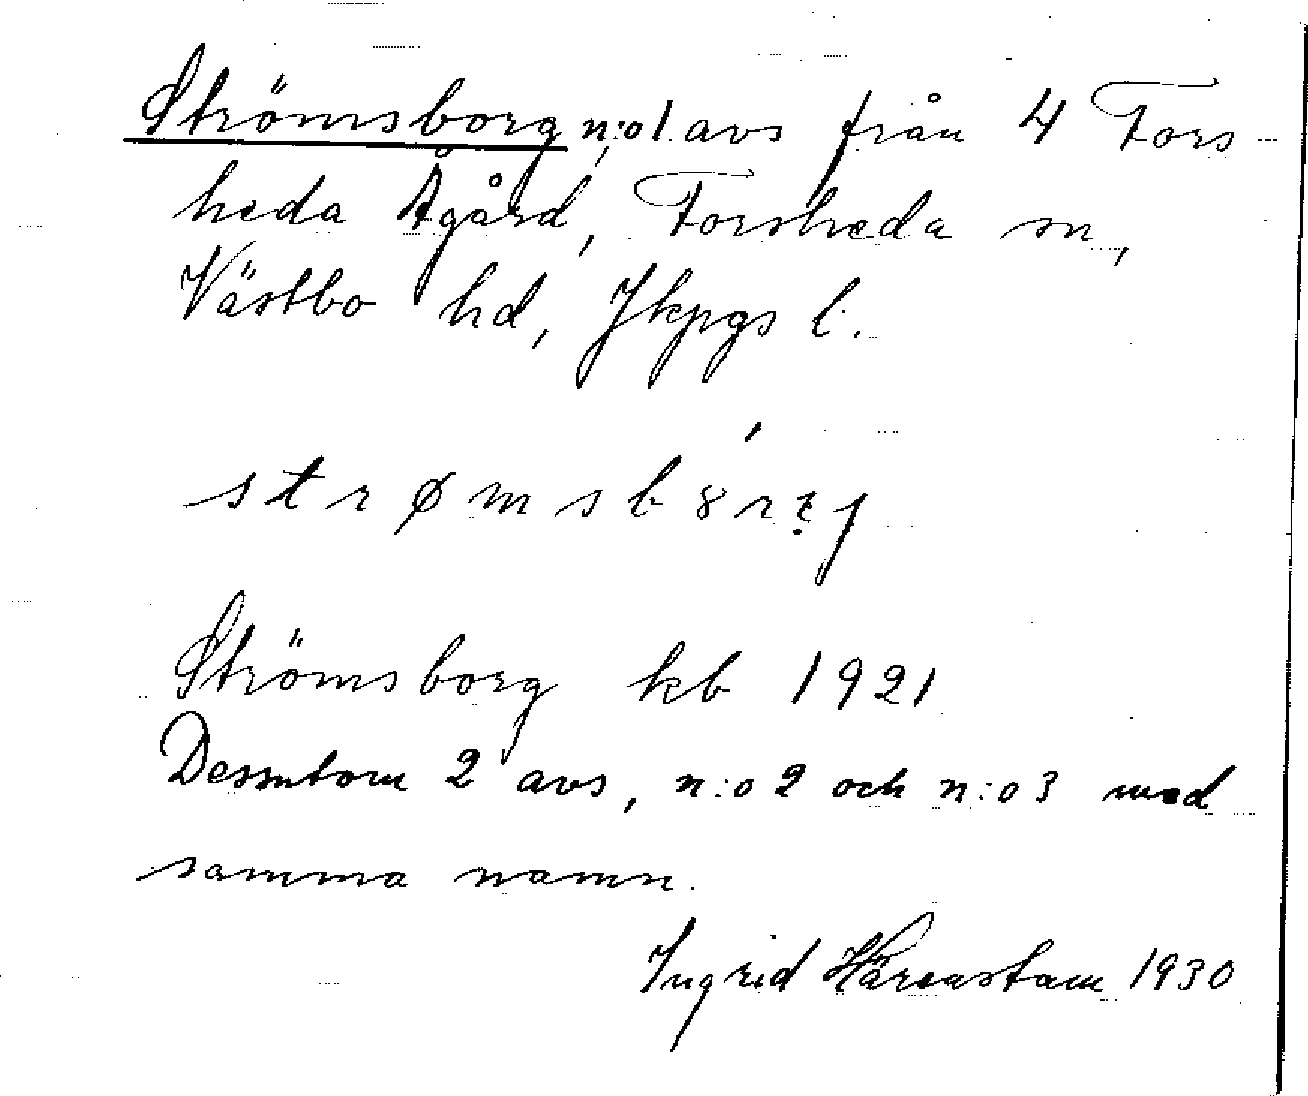 Strömsborg n:o 1. avs från 4 Fors-
heda Ågård, Forsheda sn,
Västbo hd, Jkpgs l.
Strömsborg kb 1921
Dessutom 2 avs, n:o 2 och n:o 3 med
samma namn.
Ingrid Härenstam 1930